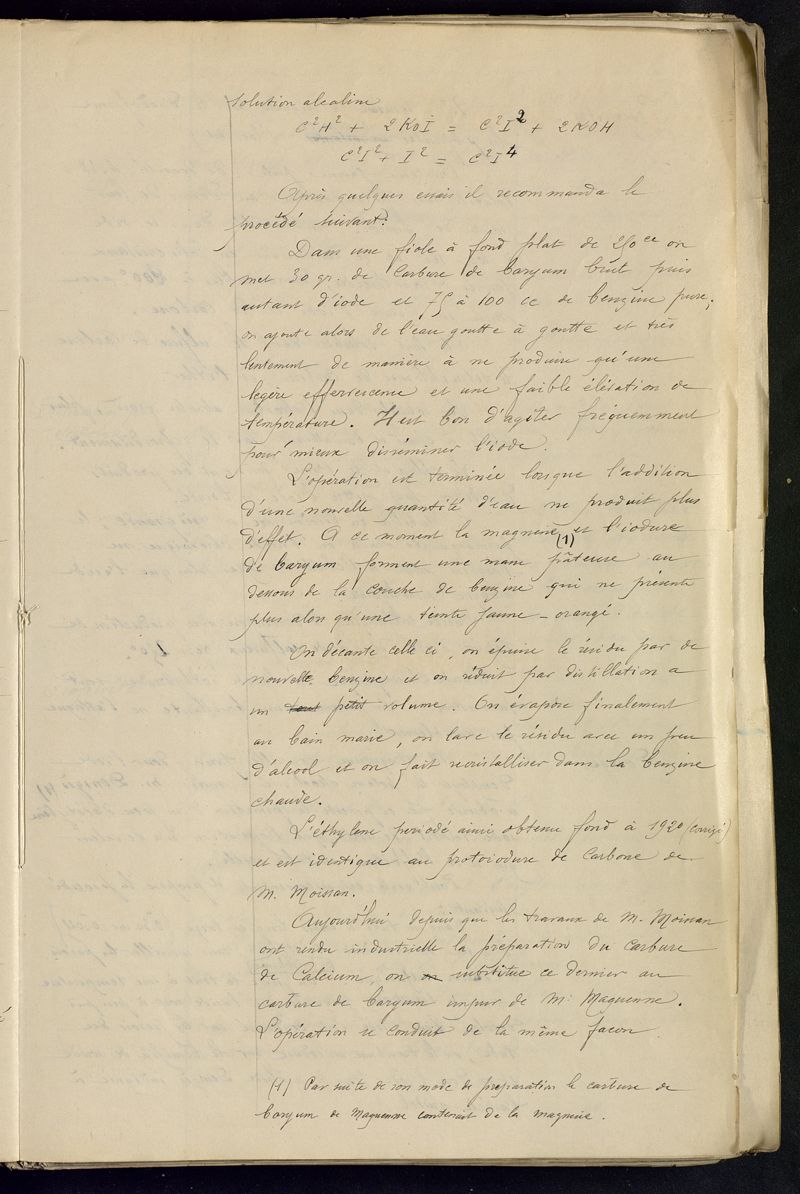 solution alcaline
C²H² + 2KOI = C²I² + 2KOH
C²I² + I² = C²I⁴
Après quelques essais il recommanda le
procédé suivant:
Dans une fiole à fond plat de 250 cc on
met 30 gr. de Carbure de baryum brut puis
autant d'iode et 75 à 100 cc de benzine pure;
on ajoute alors de l'eau goutte à goutte et très
lentement de manière à ne produire qu'une
légère effervescence et une faible élévation de
température. Il est bon d'agiter fréquemment
pour mieux disséminer l'iode.
L'opération est terminée lorsque l'addition
d'une nouvelle quantité d'eau ne produit plus
d'effet. A ce moment la magnésie (1) et l'iodure
de baryum forment une masse pâteuse au
dessous de la couche de benzine qui ne présente
plus alors qu'une teinte jaune-orangé.
On décante celle ci, on épuise le résidu par de
nouvelle benzine et on réduit par distillation a
un tout petit volume. On évapore finalement
au bain marie, on lave le résidu avec un peu
d'alcool et on fait recristalliser dans la benzine
chaude.
L'éthylène periodé ainsi obtenu fond à 192° (corrigé)
et est identique au protoiodure de Carbone de
M. Moissan.
Aujourd'hui depuis que les travaux de M. Moissan
ont rendu industrielle la préparation du carbure
de Calcium, on substitue ce dernier au
carbure de baryum impur de Mr Maquenne.
L'opération se conduit de la même façon.
(1) Par suite de son mode de préparation le carbure de
baryum de Maquenne contenait de la magnésie.